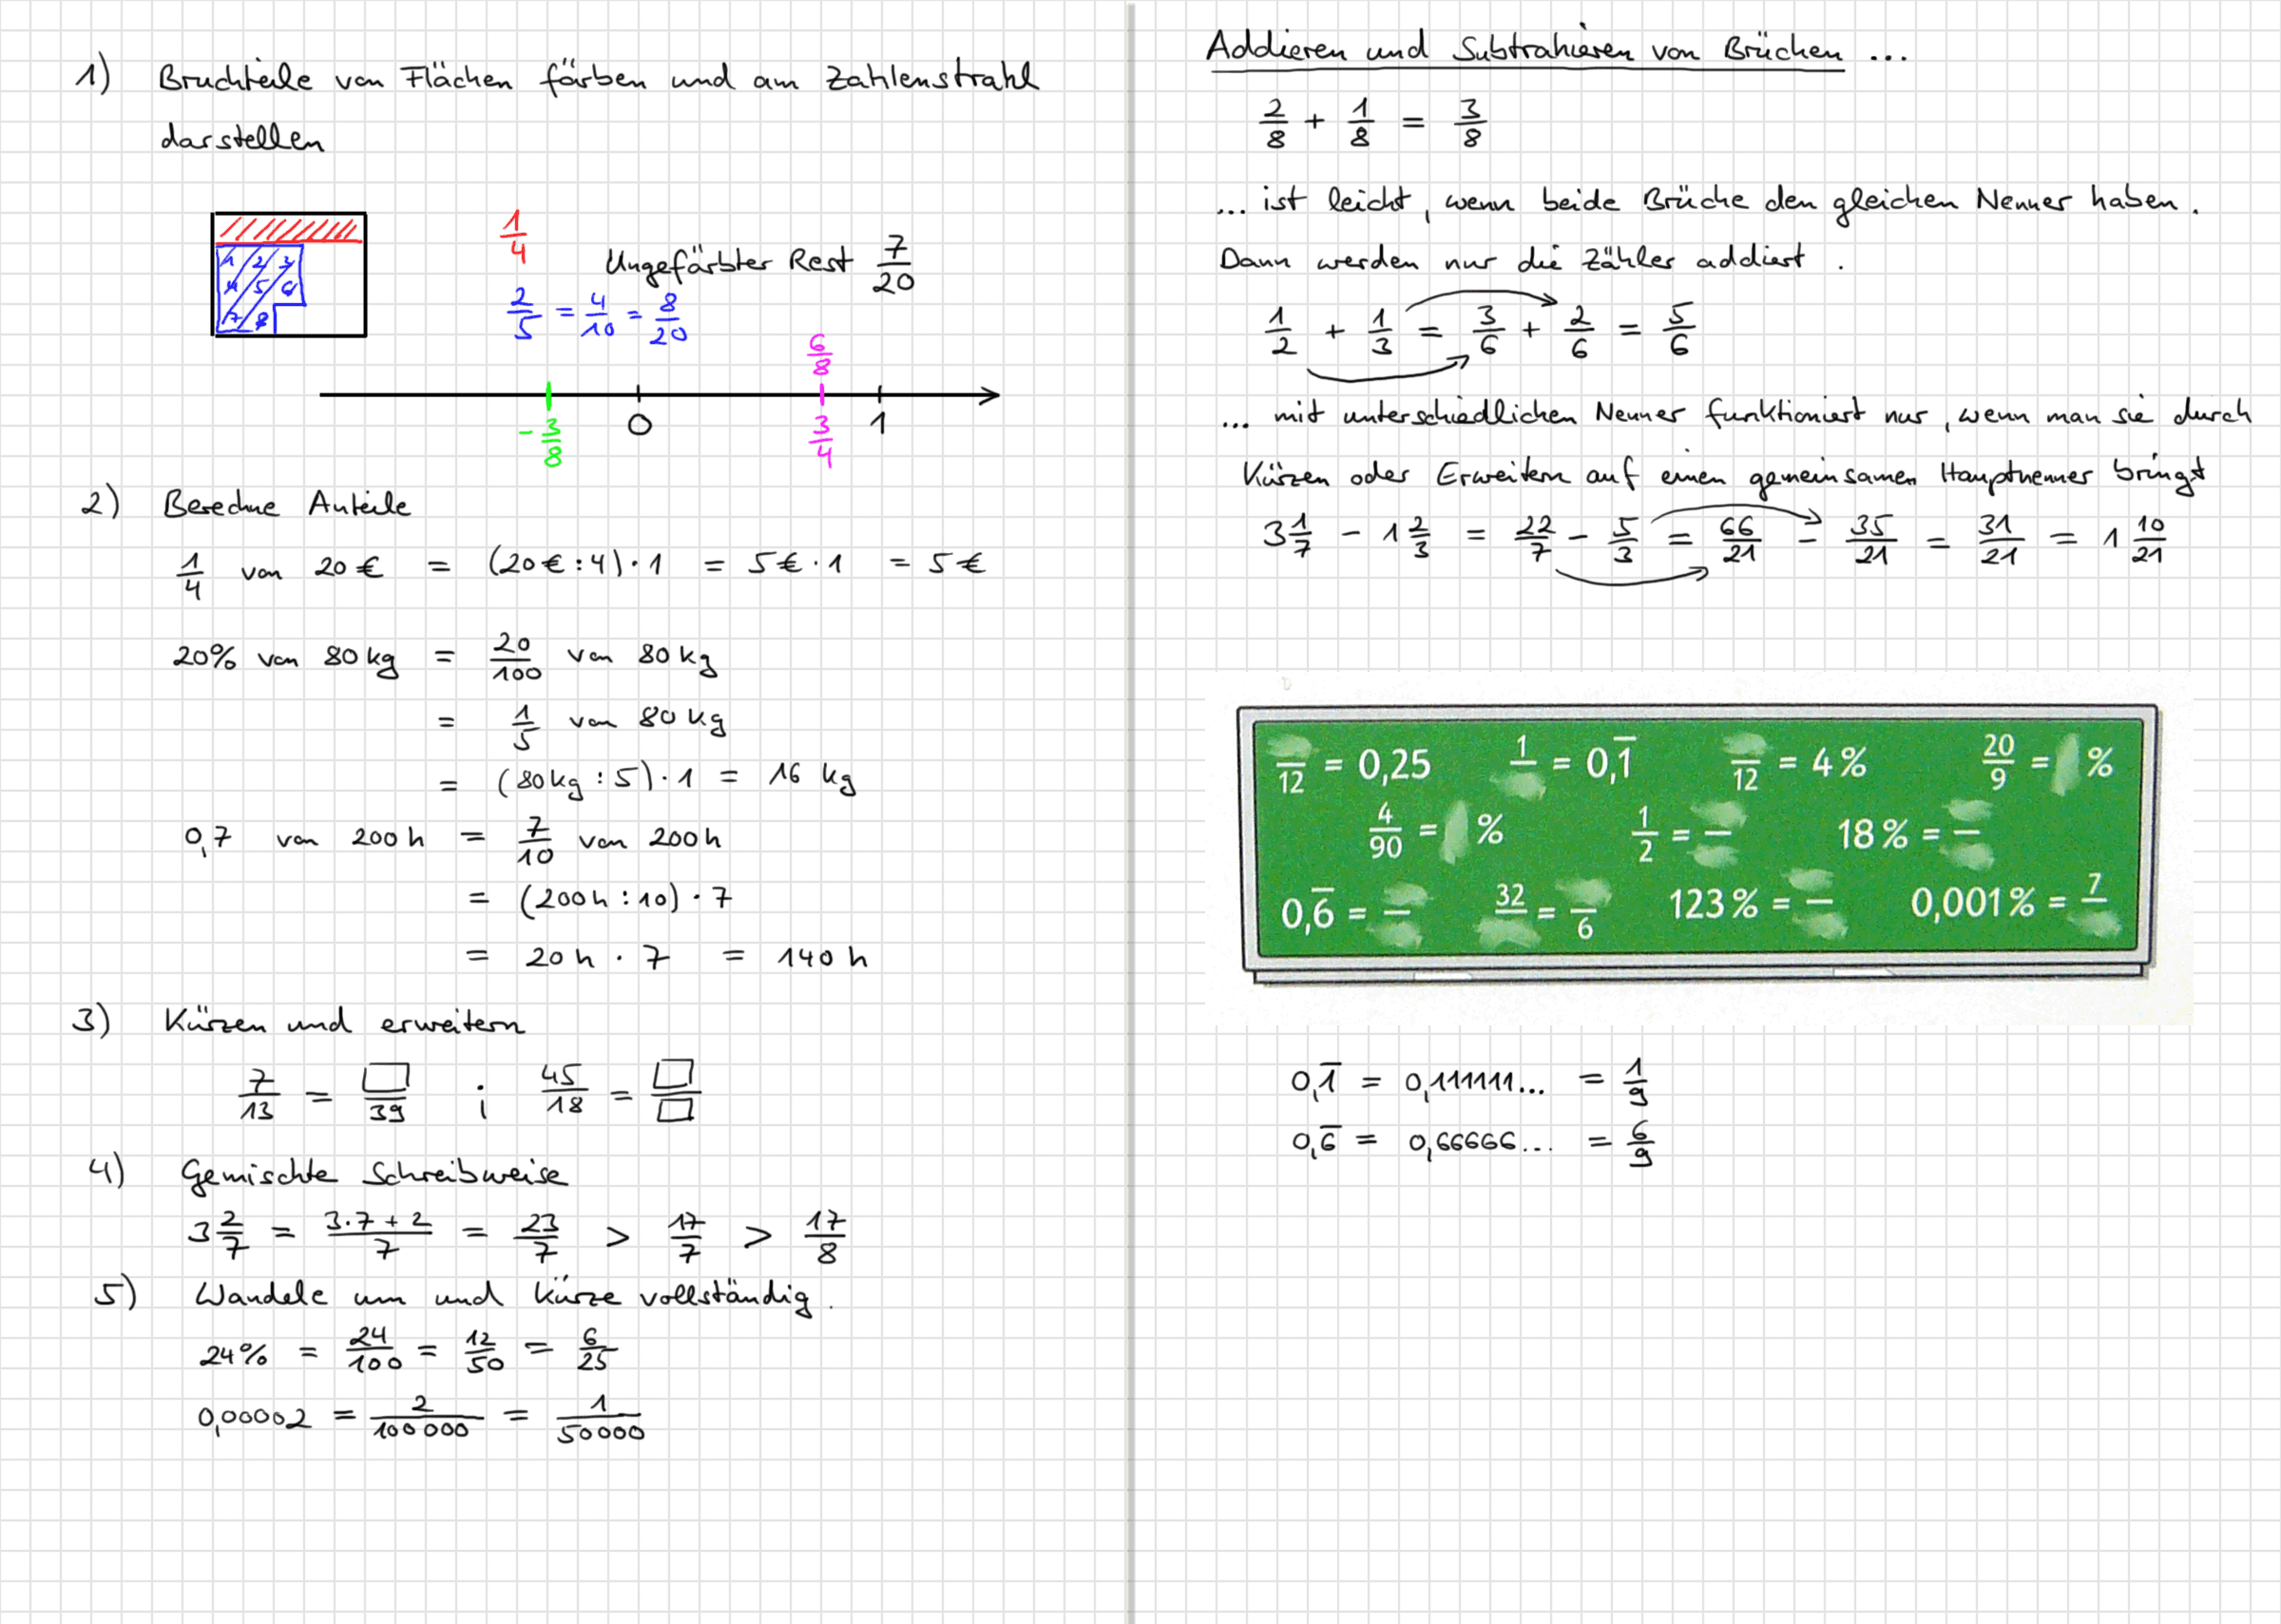 1) Bruchteile von Flächen färben und am Zahlenstrahl
darstellen
1/4
Ungefärbter Rest 7/20
1 2 3
4 5 6
7 8
2/5 = 4/10 = 8/20
6/8
-3/8 0 3/4 1
2) Berechne Anteile
1/4 von 20€ = (20€:4)·1 = 5€·1 = 5€
20% von 80kg = 20/100 von 80kg
= 1/5 von 80kg
= (80kg:5)·1 = 16 kg
0,7 von 200h = 7/10 von 200h
= (200h:10)·7
= 20h · 7 = 140h
3) Kürzen und erweitern
7/13 = □/39 ; 45/18 = □/□
4) Gemischte Schreibweise
3 2/7 = (3·7+2)/7 = 23/7 > 17/7 > 17/8
5) Wandele um und kürze vollständig.
24% = 24/100 = 12/50 = 6/25
0,00002 = 2/100000 = 1/50000
Addieren und Subtrahieren von Brüchen ...
2/8 + 1/8 = 3/8
... ist leicht, wenn beide Brüche den gleichen Nenner haben.
Dann werden nur die Zähler addiert.
1/2 + 1/3 = 3/6 + 2/6 = 5/6
... mit unterschiedlichen Nenner funktioniert nur, wenn man sie durch
Kürzen oder Erweitern auf einen gemeinsamen Hauptnenner bringt
3 1/7 - 1 2/3 = 22/7 - 5/3 = 66/21 - 35/21 = 31/21 = 1 10/21
/12 = 0,25 1/ = 0,1̅ /12 = 4% 20/9 = %
4/90 = % 1/2 = / 18% = /
0,6̅ = / 32/ = /6 123% = / 0,001% = 7/
0,1̅ = 0,111111... = 1/9
0,6̅ = 0,66666... = 6/9